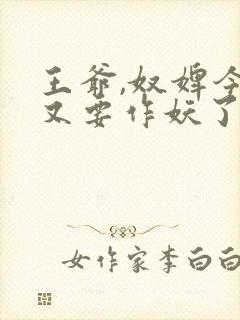 王爷,奴婢今
又要作妖了
女作家李白白